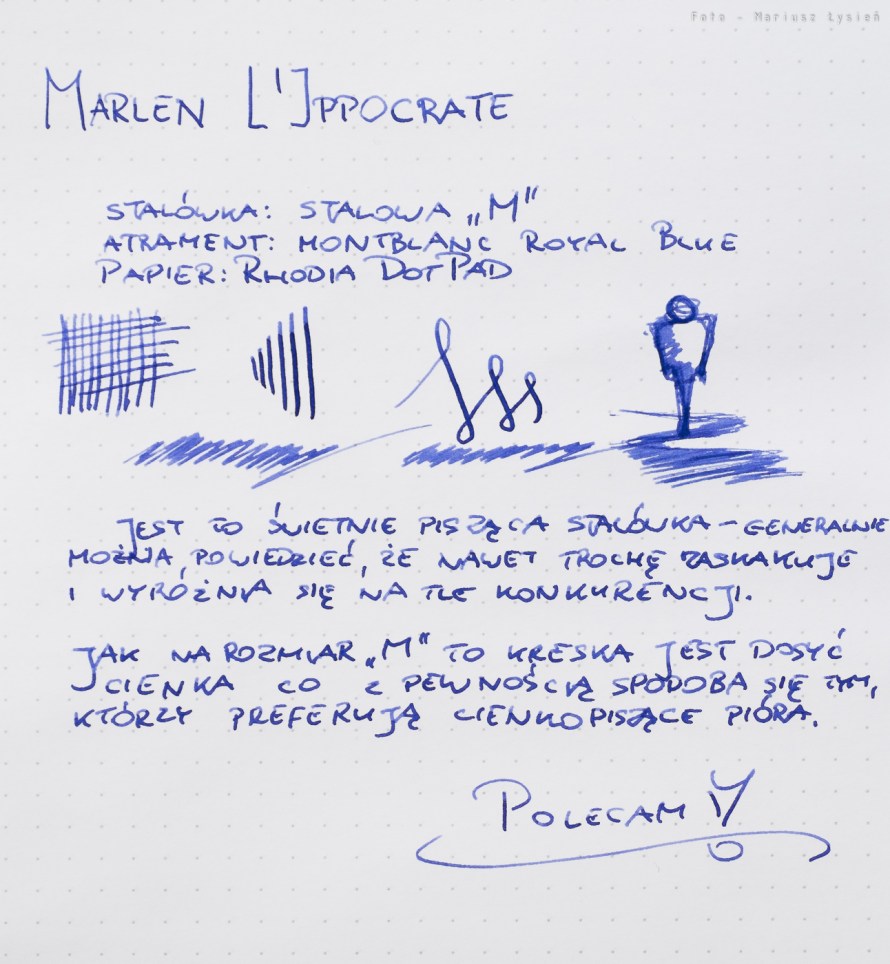 Foto - Mariusz Łysień
MARLEN L'IPPOCRATE
STALÓWKA: STALOWA „M"
ATRAMENT: MONTBLANC ROYAL BLUE
PAPIER: RHODIA DOTPAD
JEST TO ŚWIETNIE PISZĄCA STALÓWKA – GENERALNIE
MOŻNA POWIEDZIEĆ, ŻE NAWET TROCHĘ ZASKAKUJE
I WYRÓŻNIA SIĘ NA TLE KONKURENCJI.
JAK NA ROZMIAR „M" TO KRESKA JEST DOSYĆ
CIENKA CO Z PEWNOŚCIĄ SPODOBA SIĘ TYM,
KTÓRZY PREFERUJĄ CIENKO PISZĄCE PIÓRA.
POLECAM